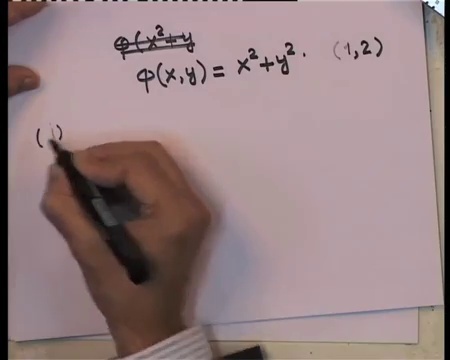 φ(x²+y
φ(x,y) = x²+y². (1,2)
(i)